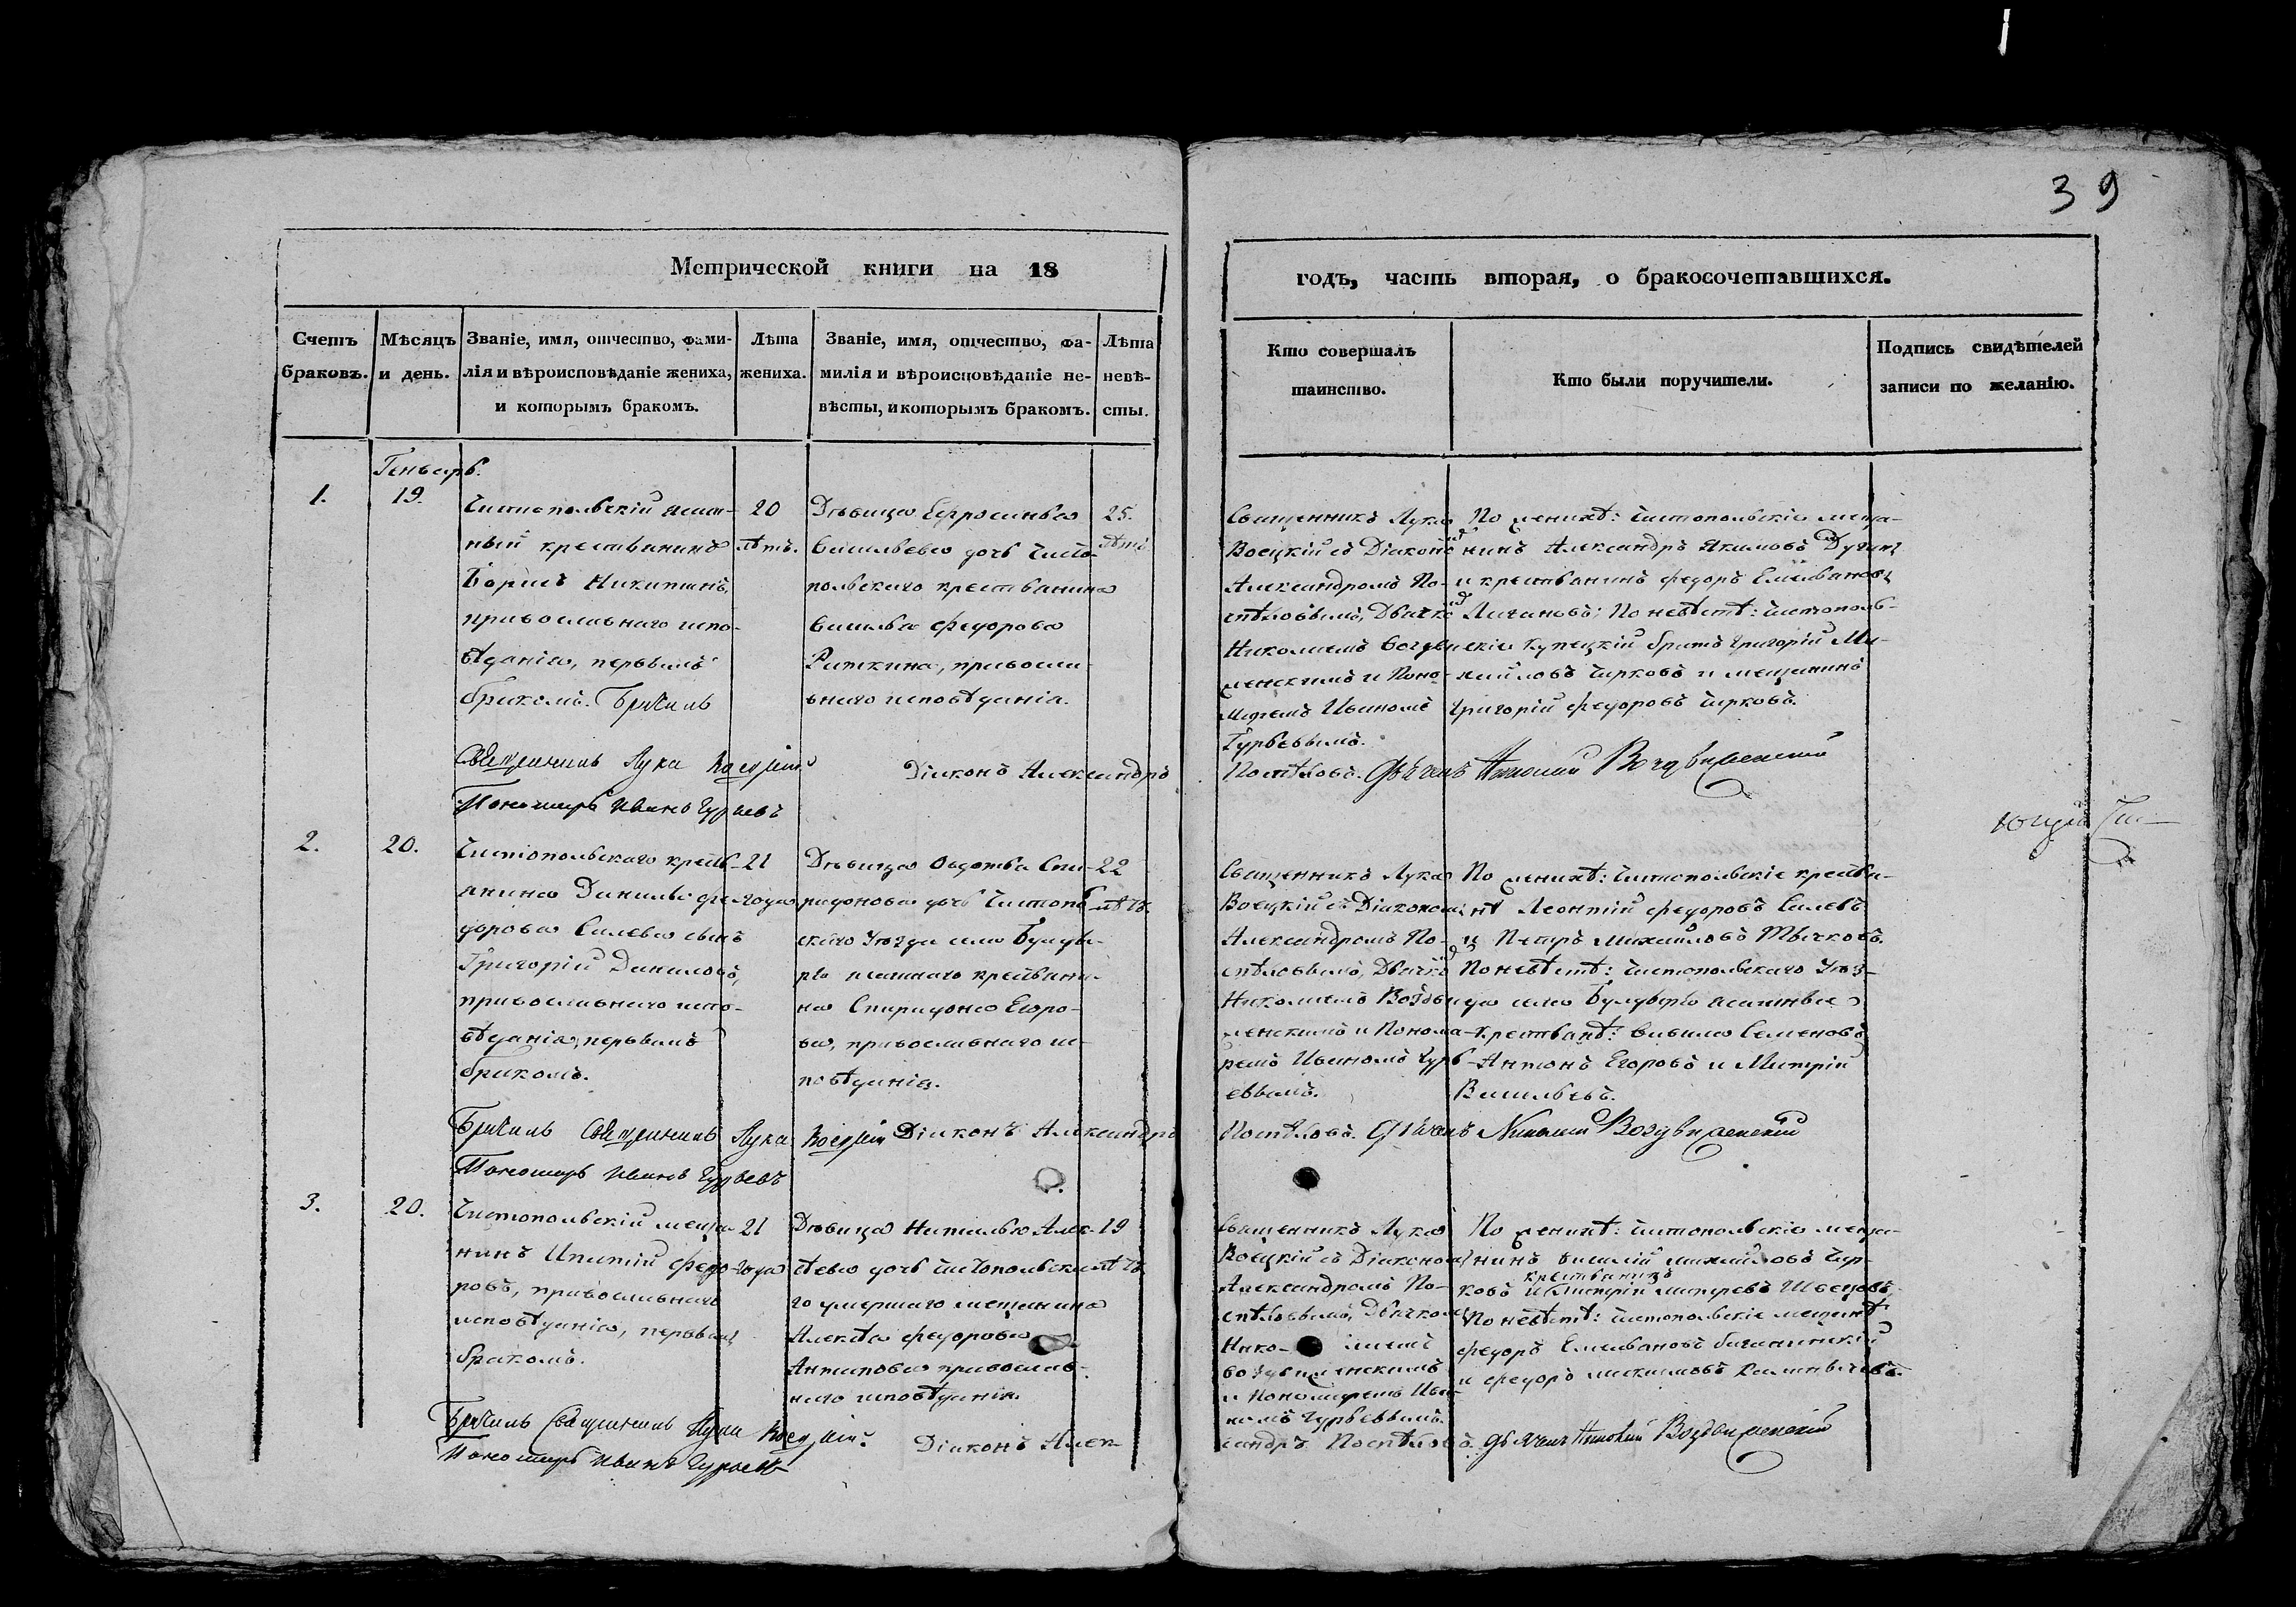 39
Метрической книги на 18
годъ, часть вторая, о бракосочетавшихся.
Счетъ браковъ.
Мѣсяцъ и день.
Званіе, имя, отчество, фами-
лія и вѣроисповѣданіе жениха,
и которымъ бракомъ.
Лѣта
жениха.
Званіе, имя, отчество, фа-
милія и вѣроисповѣданіе не-
вѣсты, и которымъ бракомъ.
Лѣта
невѣ-
сты.
Кто совершалъ
таинство.
Кто были поручители.
Подпись свидѣтелей
записи по желанію.
Генварь.
1.
19.
Чистопольскій ясаш-
ный крестьянинъ
Борисъ Никитинъ,
православнаго испо-
вѣданія, первымъ
бракомъ.
20
лѣтъ.
Дѣвица Ефросинья
Васильева дочь Чисто-
польскаго крестьянина
Василья Федорова
Раткина, правосла-
внаго исповѣданія.
25.
лѣтъ
Священникъ Лука
Воецкій съ Діакономъ
Александромъ По-
спѣловымъ, Дьячкомъ
Николаемъ Воздви-
женскимъ и Поно-
маремъ Иваномъ
Гурьевымъ.
По женихѣ: чистопольскіе меща-
нинъ Александръ Якимовъ
и крестьянинъ Федоръ Емельяновъ
По невѣстѣ: чистополь-
скіе купецкій братъ Григорій Ми-
хайловъ Чирковъ и мещанинъ
Григорій Федоровъ Чирковъ.
Священникъ Лука Воецкій
Діаконъ Александръ
Поспѣловъ. Дьячекъ Николай Воздвиженскій
Пономарь Иванъ Гурьевъ
2.
20.
Чистопольскаго кресть-
янина Данилы Фе-
дорова Силева сынъ
Григорій Даниловъ,
православнаго испо-
вѣданія, первымъ
бракомъ.
21
года
Дѣвица Овдотья Спи-
ридонова дочь Чистополь-
скаго Уезда села Булды-
ря ясашнаго крестьяни-
на Спиридона Егоро-
ва, православнаго ис-
повѣданія.
22
лѣтъ
Священникъ Лука
Воецкій съ Діакономъ
Александромъ По-
спѣловымъ, Дьячкомъ
Николаемъ Воздви-
женскимъ и Понома-
ремъ Иваномъ Гурь-
евымъ.
По женихѣ: чистопольскіе крестья-
нѣ Леонтій Федоровъ Силевъ
и Петръ Михайловъ
По невѣстѣ: чистопольскаго Уѣз-
да села Булдыря ясашные
крестьянѣ: Василій Семеновъ,
Антонъ Егоровъ и Митрій
Васильевъ.
Священникъ Лука Воецкій Діаконъ Александръ
Поспѣловъ. Дьячекъ Николай Воздвиженскій
Пономарь Иванъ Гурьевъ
3.
20.
Чистопольскій меща-
нинъ Ипатій Федо-
ровъ, православнаго
исповѣданія, первымъ
бракомъ.
21
года
Дѣвица Наталья Алек-
сѣева дочь чистопольска-
го умершаго мещанина
Алексѣя Федорова
Антипова православ-
наго исповѣданія.
19
лѣтъ
Священникъ Лука
Воецкій съ Діакономъ
Александромъ По-
спѣловымъ, Дьячкомъ
Нико-лаемъ
воздвиженскимъ
и Пономаремъ Ива-
номъ Гурьевымъ.
По женихѣ: чистопольскіе меща-
нинъ Василій Михайловъ Чир-
крестьянинъ
ковъ и Дмитрій
По невѣстѣ: чистопольскіе мещанѣ
Федоръ Емельяновъ
и Федоръ
Священникъ Лука Воецкій Діаконъ Алек-
сандръ Поспѣловъ. Дьячекъ Николай Воздвиженскій
Пономарь Иванъ Гурьевъ